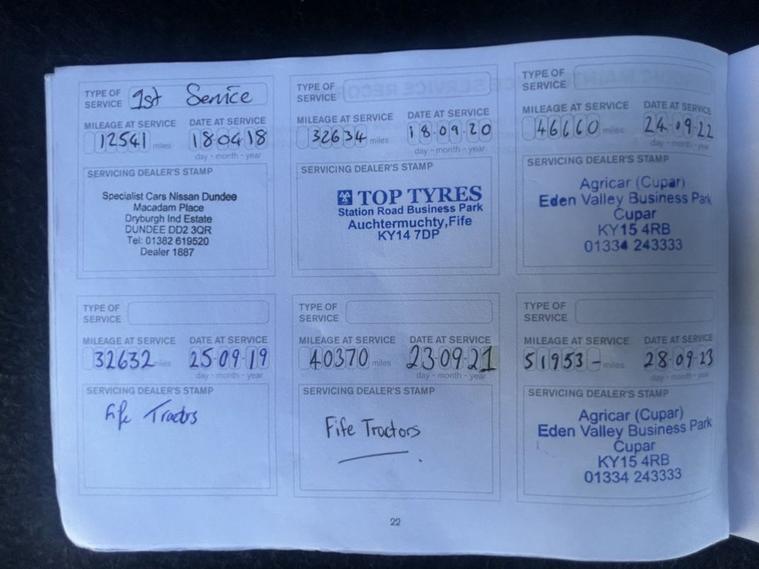 TYPE OF SERVICE 1st Service
MILEAGE AT SERVICE DATE AT SERVICE
12541 miles 18 04 18
day - month - year
SERVICING DEALER'S STAMP
Specialist Cars Nissan Dundee
Macadam Place
Dryburgh Ind Estate
DUNDEE DD2 3QR
Tel: 01382 619520
Dealer 1887
TYPE OF SERVICE
MILEAGE AT SERVICE DATE AT SERVICE
32634 miles 18.09.20
day - month - year
SERVICING DEALER'S STAMP
TOP TYRES
Station Road Business Park
Auchtermuchty, Fife
KY14 7DP
TYPE OF SERVICE
MILEAGE AT SERVICE DATE AT SERVICE
46660 miles 24.09.22
day - month - year
SERVICING DEALER'S STAMP
Agricar (Cupar)
Eden Valley Business Park
Cupar
KY15 4RB
01334 243333
TYPE OF SERVICE
MILEAGE AT SERVICE DATE AT SERVICE
32632 miles 25.09.19
day - month - year
SERVICING DEALER'S STAMP
Fife Tractors
TYPE OF SERVICE
MILEAGE AT SERVICE DATE AT SERVICE
40370 miles 23.09.21
day - month - year
SERVICING DEALER'S STAMP
Fife Tractors
TYPE OF SERVICE
MILEAGE AT SERVICE DATE AT SERVICE
51953 - miles 28.09.23
day - month - year
SERVICING DEALER'S STAMP
Agricar (Cupar)
Eden Valley Business Park
Cupar
KY15 4RB
01334 243333
22